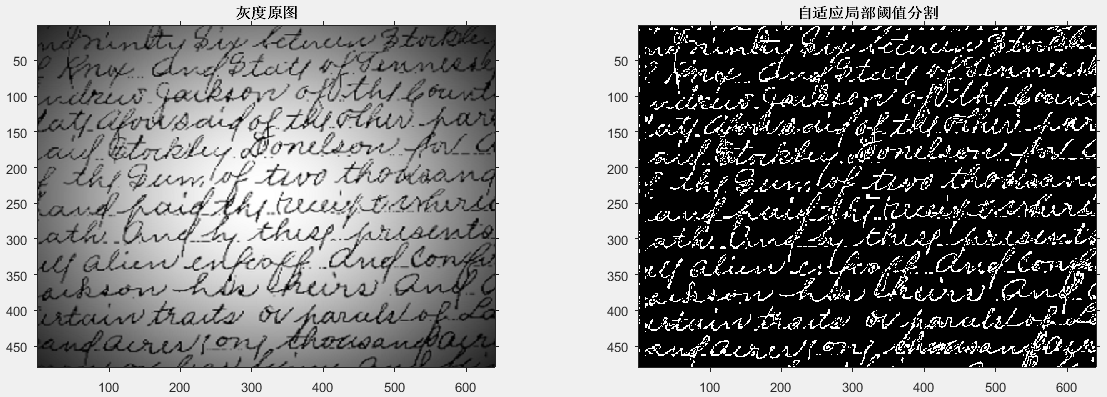 灰度原图
nd Ninety Six between Stockley
f Knox And State of Tennessee
ndrew Jackson of the Count
tate aforesaid of the other par
aid Stockley Donelson for a
f the Sum of two thousand
hand paid the receipt where
ath And by these presents
ell alien enfeoff And Confir
ackson his heirs And a
ertain traits or parcels of La
and acres, one thousand acre
50
100
150
200
250
300
350
400
450
100 200 300 400 500 600
自适应局部阈值分割
nd Ninety Six between Stockley
f Knox And State of Tennesse
ndrew Jackson of the Count
tate aforesaid of the other par
aid Stockley Donelson for a
f the Sum of two thousand
hand paid the receipt where
ath And by these presents
ell alien enfeoff And Conf
ackson his heirs And
ertain traits or parcels of La
and acres, one thousand acre
50
100
150
200
250
300
350
400
450
100 200 300 400 500 600